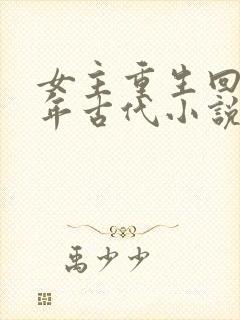 女主重生回
年古代小説
禹少少